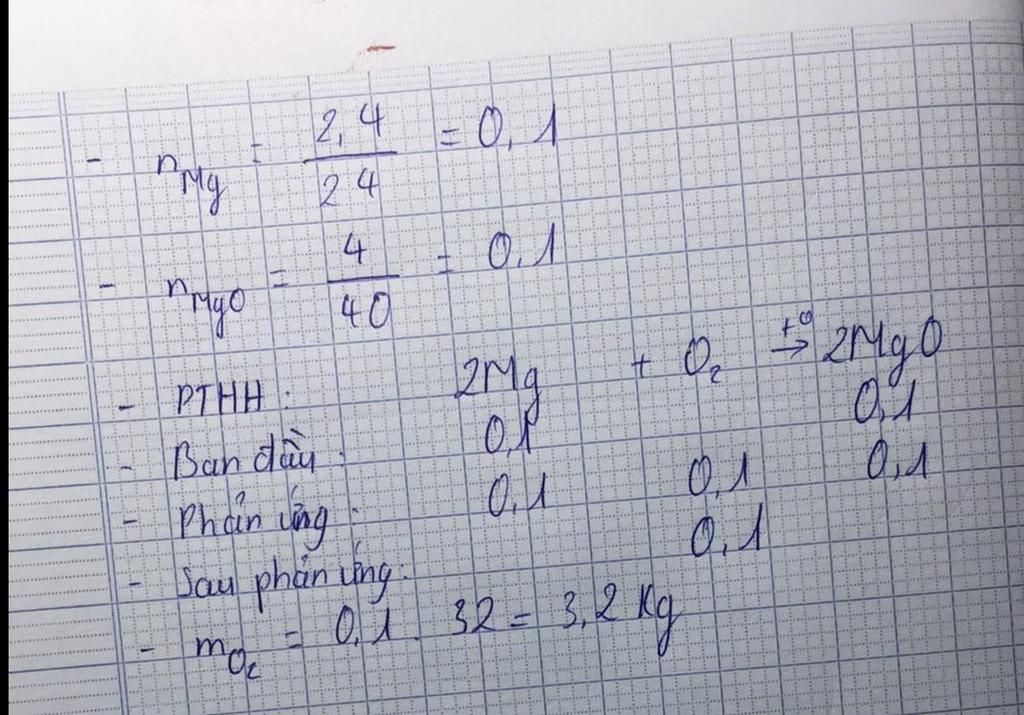 - nMg = 2,4/24 = 0,1
- nMgO = 4/40 = 0,1
- PTHH: 2Mg + O₂ →t° 2MgO
- Ban đầu: 0,1 0,1
- Phản ứng: 0,1 0,1 0,1
- Sau phản ứng: 0,1
- mO₂ = 0,1 . 32 = 3,2 Kg